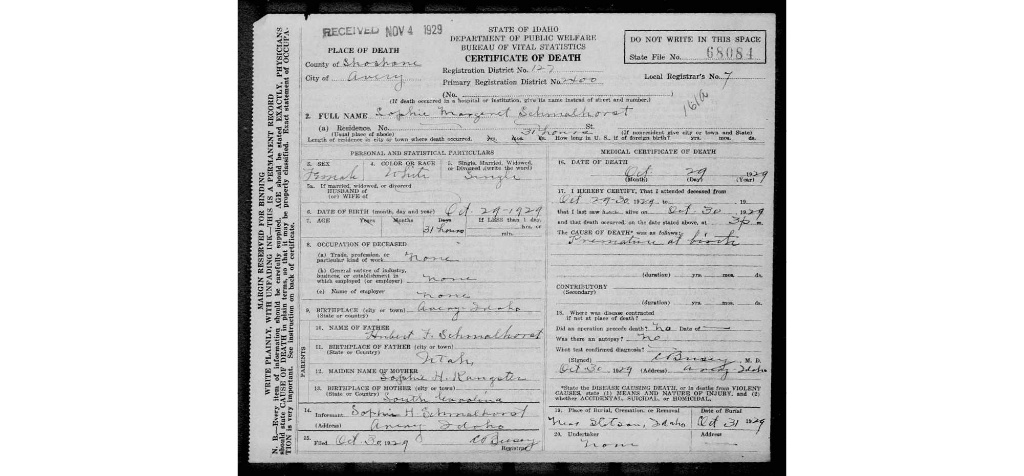 RECEIVED NOV 4 1929
STATE OF IDAHO
DEPARTMENT OF PUBLIC WELFARE
BUREAU OF VITAL STATISTICS
CERTIFICATE OF DEATH
DO NOT WRITE IN THIS SPACE
State File No. 68084
PLACE OF DEATH
County of Shoshone
City of Avery
Registration District No. 127
Primary Registration District No. 2400
Local Registrar's No. 7
(No.
(If death occurred in a hospital or institution, give its name instead of street and number.)
161a
2. FULL NAME Sophie Margaret Schmalhorst
(a) Residence. No. St.
(Usual place of abode) (If nonresident give city or town and State)
Length of residence in city or town where death occurred. yrs. mos. 31 hours ds. How long in U. S., if of foreign birth? yrs. mos. ds.
PERSONAL AND STATISTICAL PARTICULARS
3. SEX Female
4. COLOR OR RACE White
5. Single, Married, Widowed, or Divorced (write the word) Single
5a. If married, widowed, or divorced
HUSBAND of
(or) WIFE of
6. DATE OF BIRTH (month, day and year) Oct 29-1929
7. AGE Years Months Days If LESS than 1 day,
31 hours hrs. or min.
8. OCCUPATION OF DECEASED
(a) Trade, profession, or particular kind of work none
(b) General nature of industry, business, or establishment in which employed (or employer) none
(c) Name of employer none
9. BIRTHPLACE (city or town) Avery Idaho
(State or country)
PARENTS
10. NAME OF FATHER
Hubert F. Schmalhorst
11. BIRTHPLACE OF FATHER (city or town)
(State or Country) Utah
12. MAIDEN NAME OF MOTHER
Sophie H.
13. BIRTHPLACE OF MOTHER (city or town)
(State or Country) South Carolina
14. Informant Sophie H Schmalhorst
(Address) Avery Idaho
15. Filed Oct 30, 1929
Registrar
MEDICAL CERTIFICATE OF DEATH
16. DATE OF DEATH
Oct 29 1929
(Month) (Day) (Year)
17. I HEREBY CERTIFY, That I attended deceased from
Oct 29-30, 1929, to 19
that I last saw h alive on Oct. 30, 1929
and that death occurred, on the date stated above, at 3p m
The CAUSE OF DEATH* was as follows:
Premature at birth
(duration) yrs. mos. ds.
CONTRIBUTORY
(Secondary)
(duration) yrs. mos. ds.
18. Where was disease contracted
if not at place of death?
Did an operation precede death? No Date of
Was there an autopsy? No
What test confirmed diagnosis?
(Signed) M. D.
Oct 30, 1929 (Address) Avery Idaho
*State the DISEASE CAUSING DEATH, or in deaths from VIOLENT
CAUSES, state (1) MEANS AND NATURE OF INJURY, and (2)
whether ACCIDENTAL, SUICIDAL, or HOMICIDAL.
19. Place of Burial, Cremation, or Removal Date of Burial
Near Stetson, Idaho Oct 31 1929
20. Undertaker Address
None
MARGIN RESERVED FOR BINDING
WRITE PLAINLY, WITH UNFADING INK—THIS IS A PERMANENT RECORD
N. B.—Every item of information should be carefully supplied. AGE should be stated EXACTLY. PHYSICIANS
should state CAUSE OF DEATH in plain terms, so that it may be properly classified. Exact statement of OCCUPA-
TION is very important. See instruction on back of certificate.